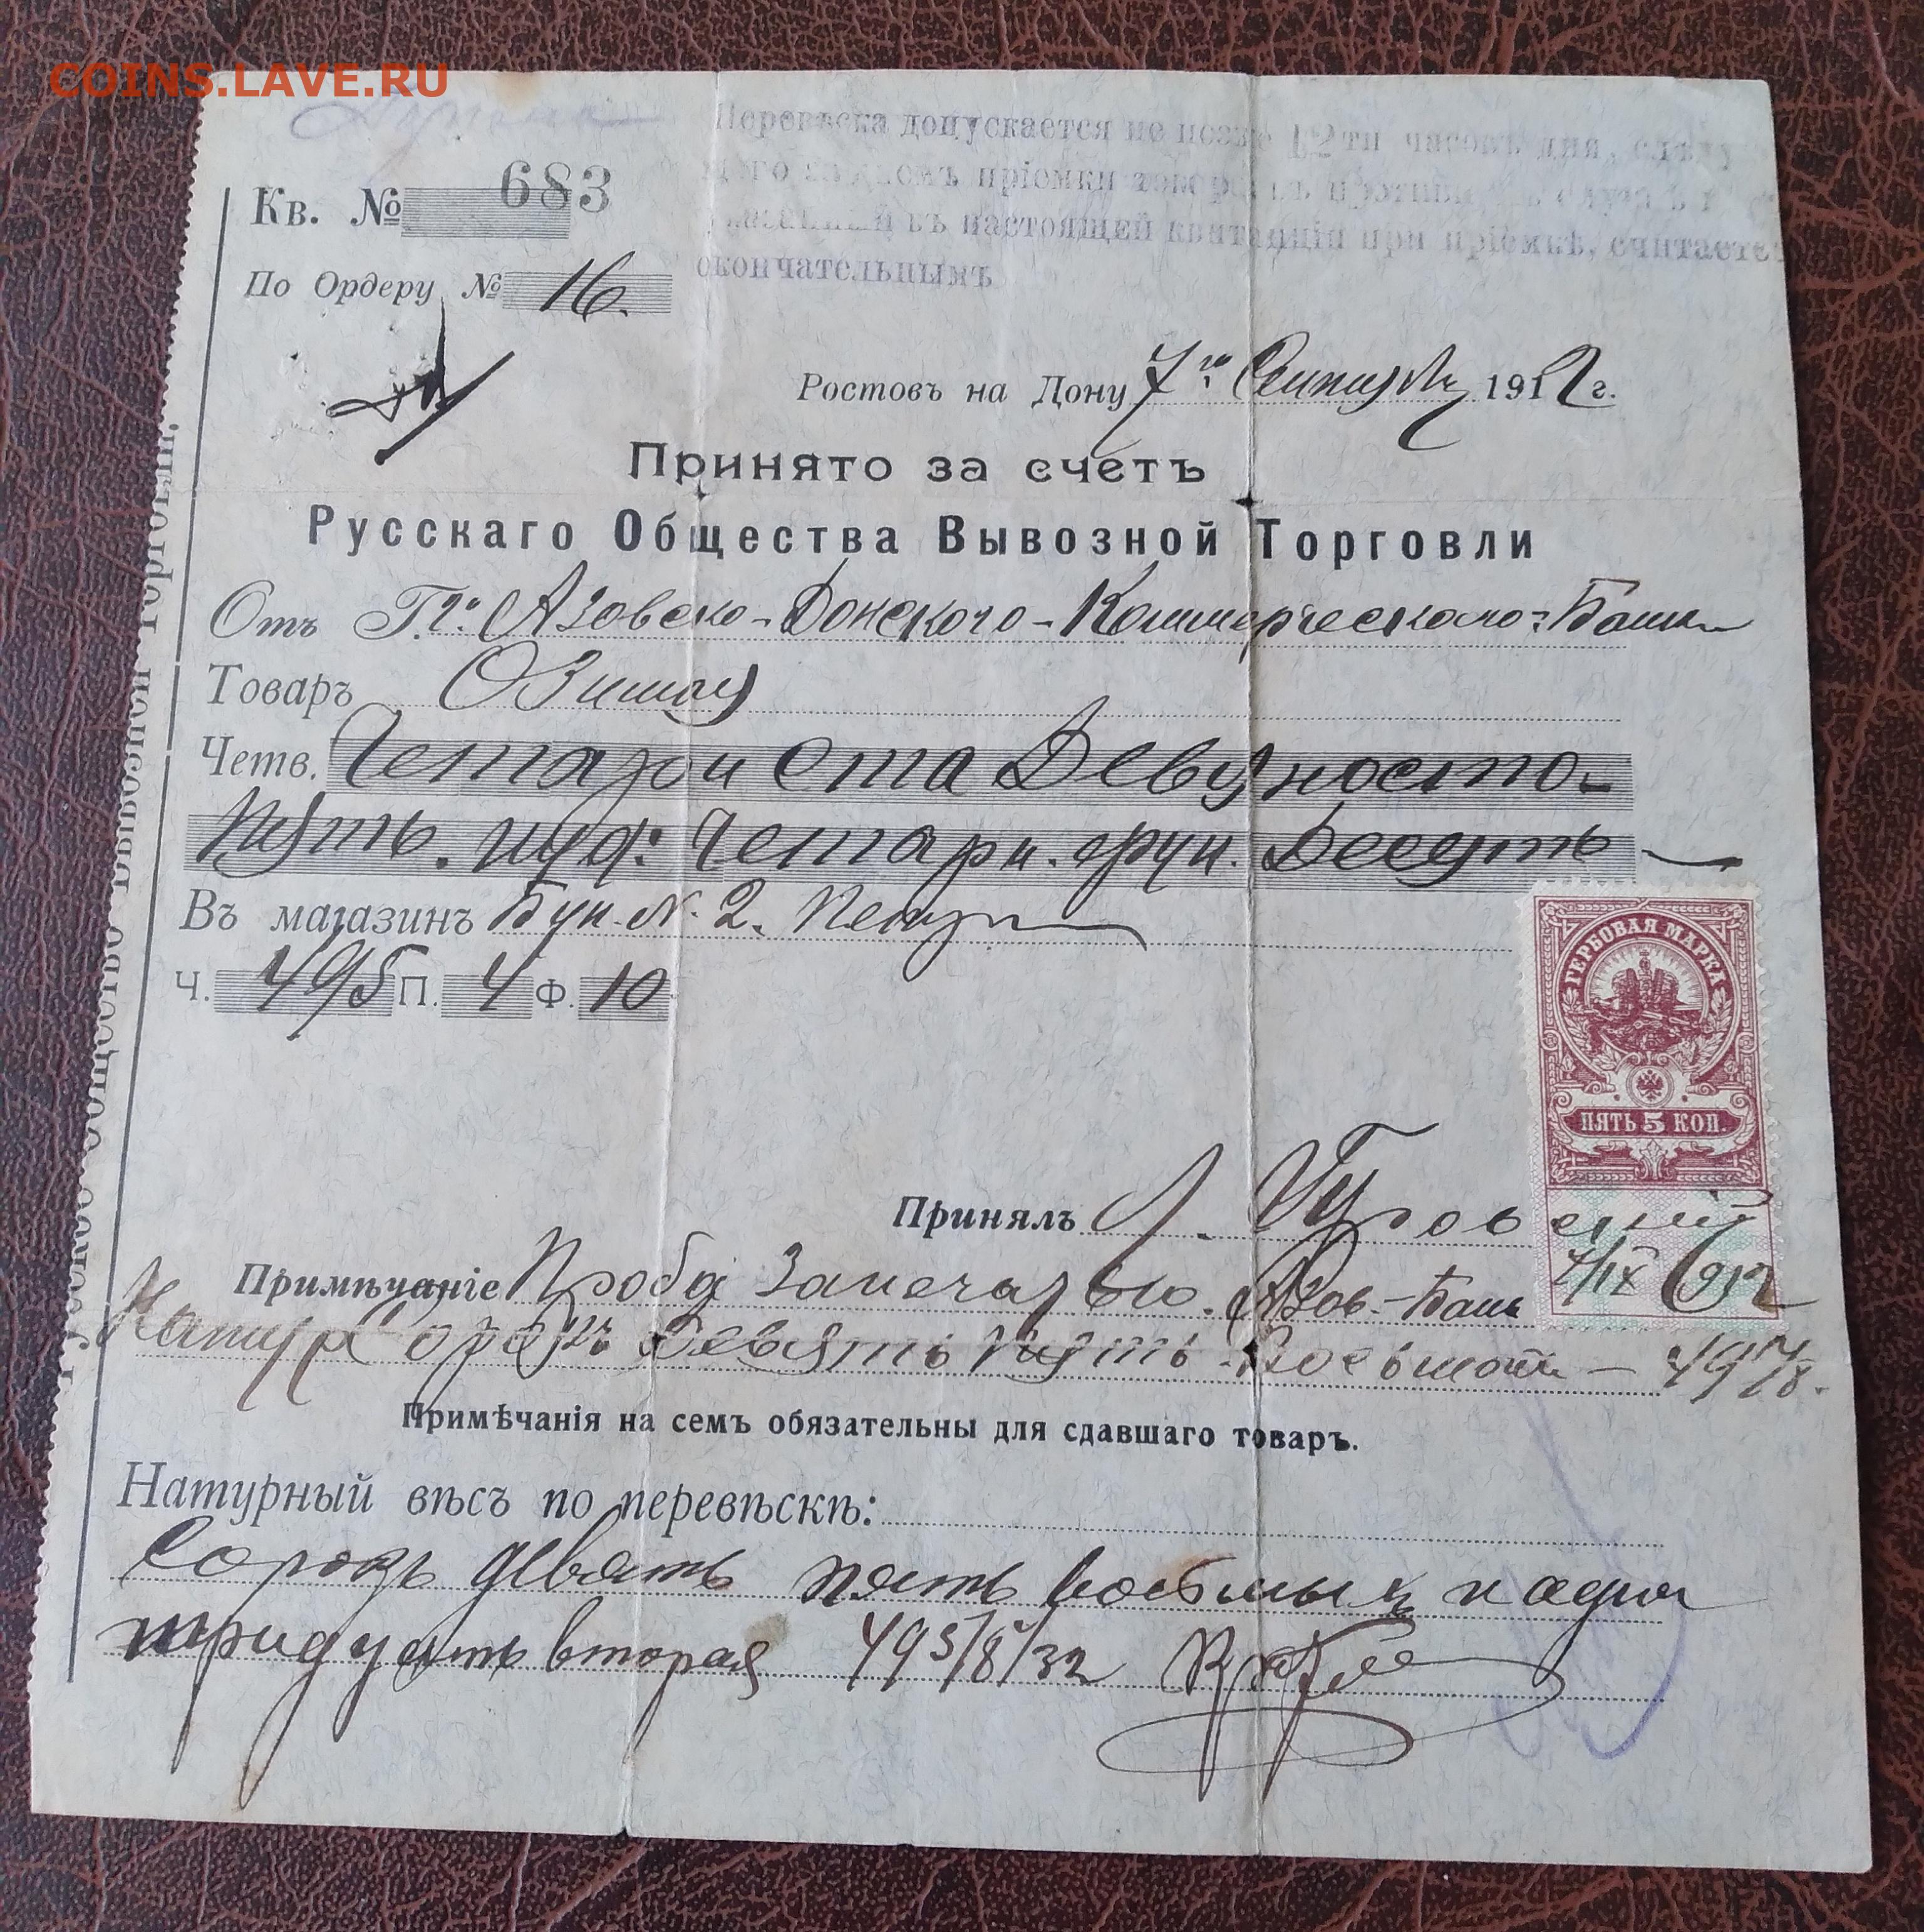 COINS.LAVE.RU
Перевѣска допускается не позже 12 ти часовъ дня, слѣду
пріемки
настоящей квитанціи при пріемкѣ, считается
окончательнымъ
Кв. № 683
По Ордеру № 16.
Ростовъ на Дону 7го Сентября 1912 г.
Принято за счетъ
Русскаго Общества Вывозной Торговли
Отъ Г.г. Азовско-Донского-Коммерческого Банка
Товаръ Озимая
Четв. Четыри ста Девяносто-
Пять. пуд: Четыри. фун. Десять
Въ магазинъ Бун. N. 2.
Ч. 495 П. 4 Ф. 10
ГЕРБОВАЯ МАРКА
ПЯТЬ 5 КОП.
Принялъ Л. Гуровский
7/IX 1912
Примѣчаніе Проба Запечатью. Азов-Банк
Натура Сорокъ Девять пять Восьмых —
Примѣчанія на семъ обязательны для сдавшаго товаръ.
Натурный вѣсъ по перевѣскѣ:
Сорокъ девять пять восьмых и одна
тридцать вторая 49 5/8 1/32
Русское Общество Вывозной Торговли.